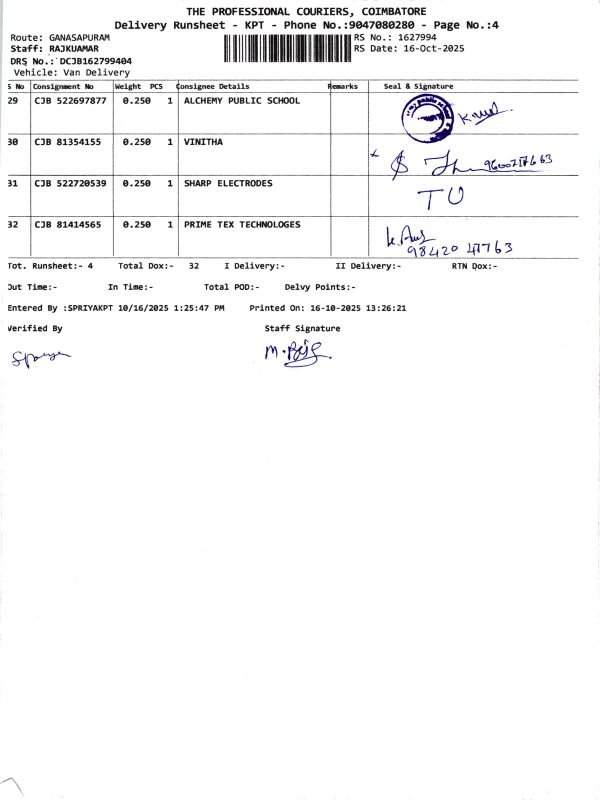 THE PROFESSIONAL COURIERS, COIMBATORE
Delivery Runsheet - KPT - Phone No.:9047080280 - Page No.:4
Route: GANASAPURAM RS No.: 1627994
Staff: RAJKUAMAR RS Date: 16-Oct-2025
DRS No.: DCJB162799404
Vehicle: Van Delivery
S No Consignment No Weight PCS Consignee Details Remarks Seal & Signature
29 CJB 522697877 0.250 1 ALCHEMY PUBLIC SCHOOL
30 CJB 81354155 0.250 1 VINITHA
31 CJB 522720539 0.250 1 SHARP ELECTRODES TU
32 CJB 81414565 0.250 1 PRIME TEX TECHNOLOGES
98420 47763
Tot. Runsheet:- 4 Total Dox:- 32 I Delivery:- II Delivery:- RTN Dox:-
Out Time:- In Time:- Total POD:- Delvy Points:-
Entered By :SPRIYAKPT 10/16/2025 1:25:47 PM Printed On: 16-10-2025 13:26:21
Verified By Staff Signature